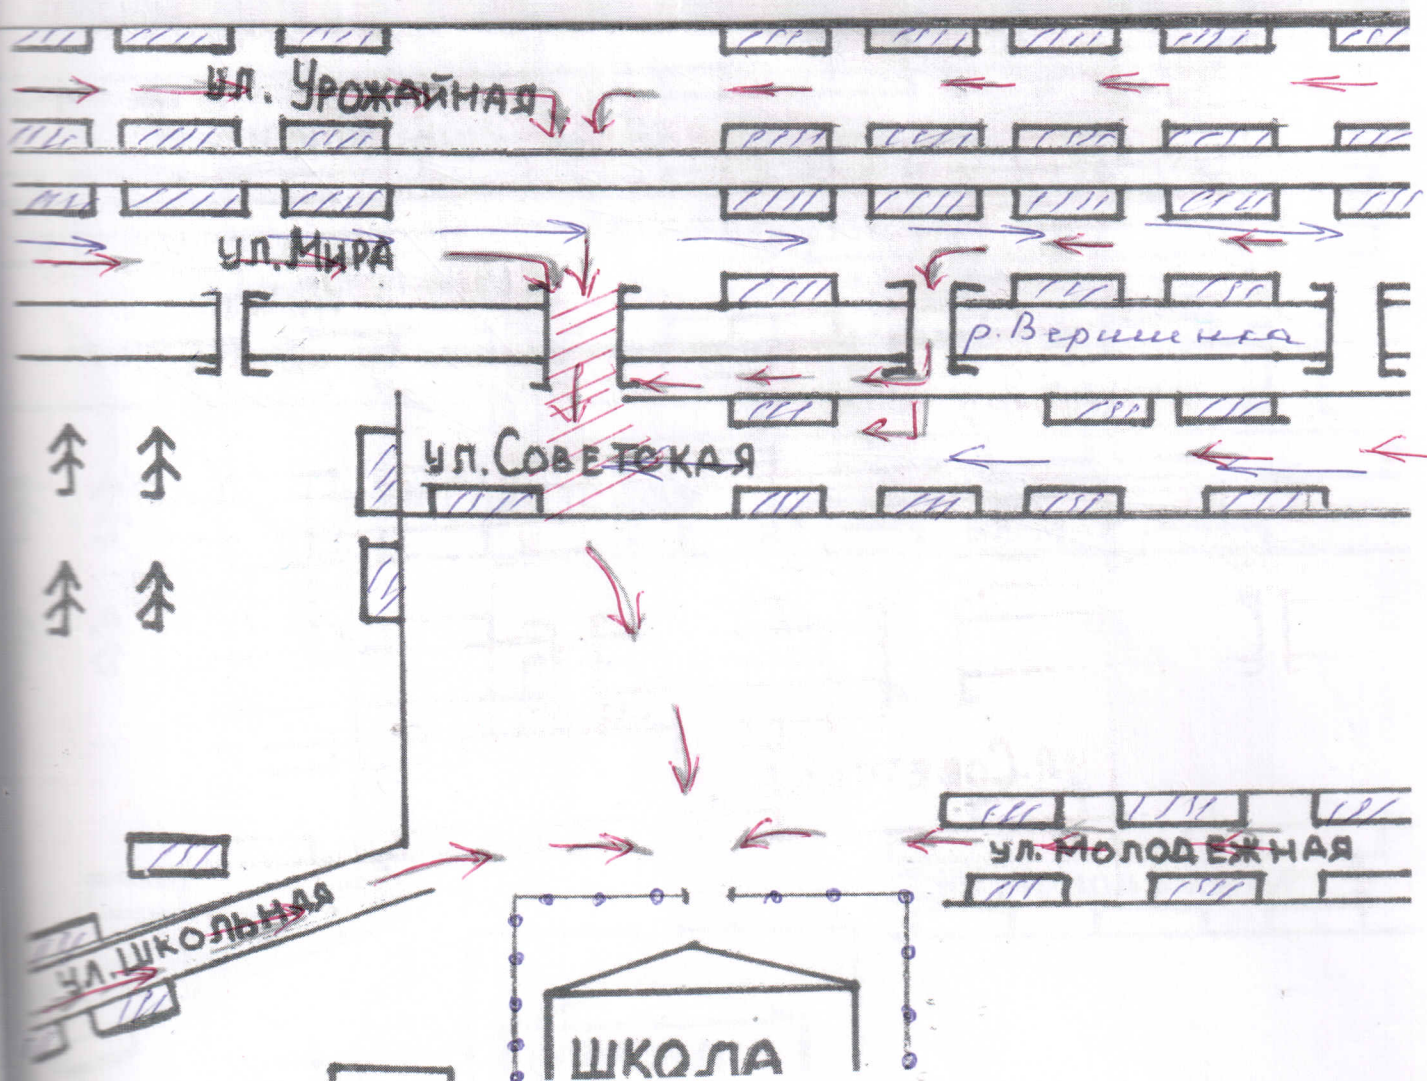 ул. Урожайная
ул. Мира
р. Вершинка
ул. Советская
ул. Молодежная
ул. Школьная
ШКОЛА